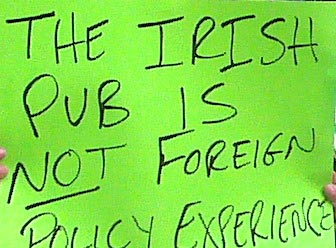 THE IRISH
PUB IS
NOT FOREIGN
POLICY EXPERIENCE